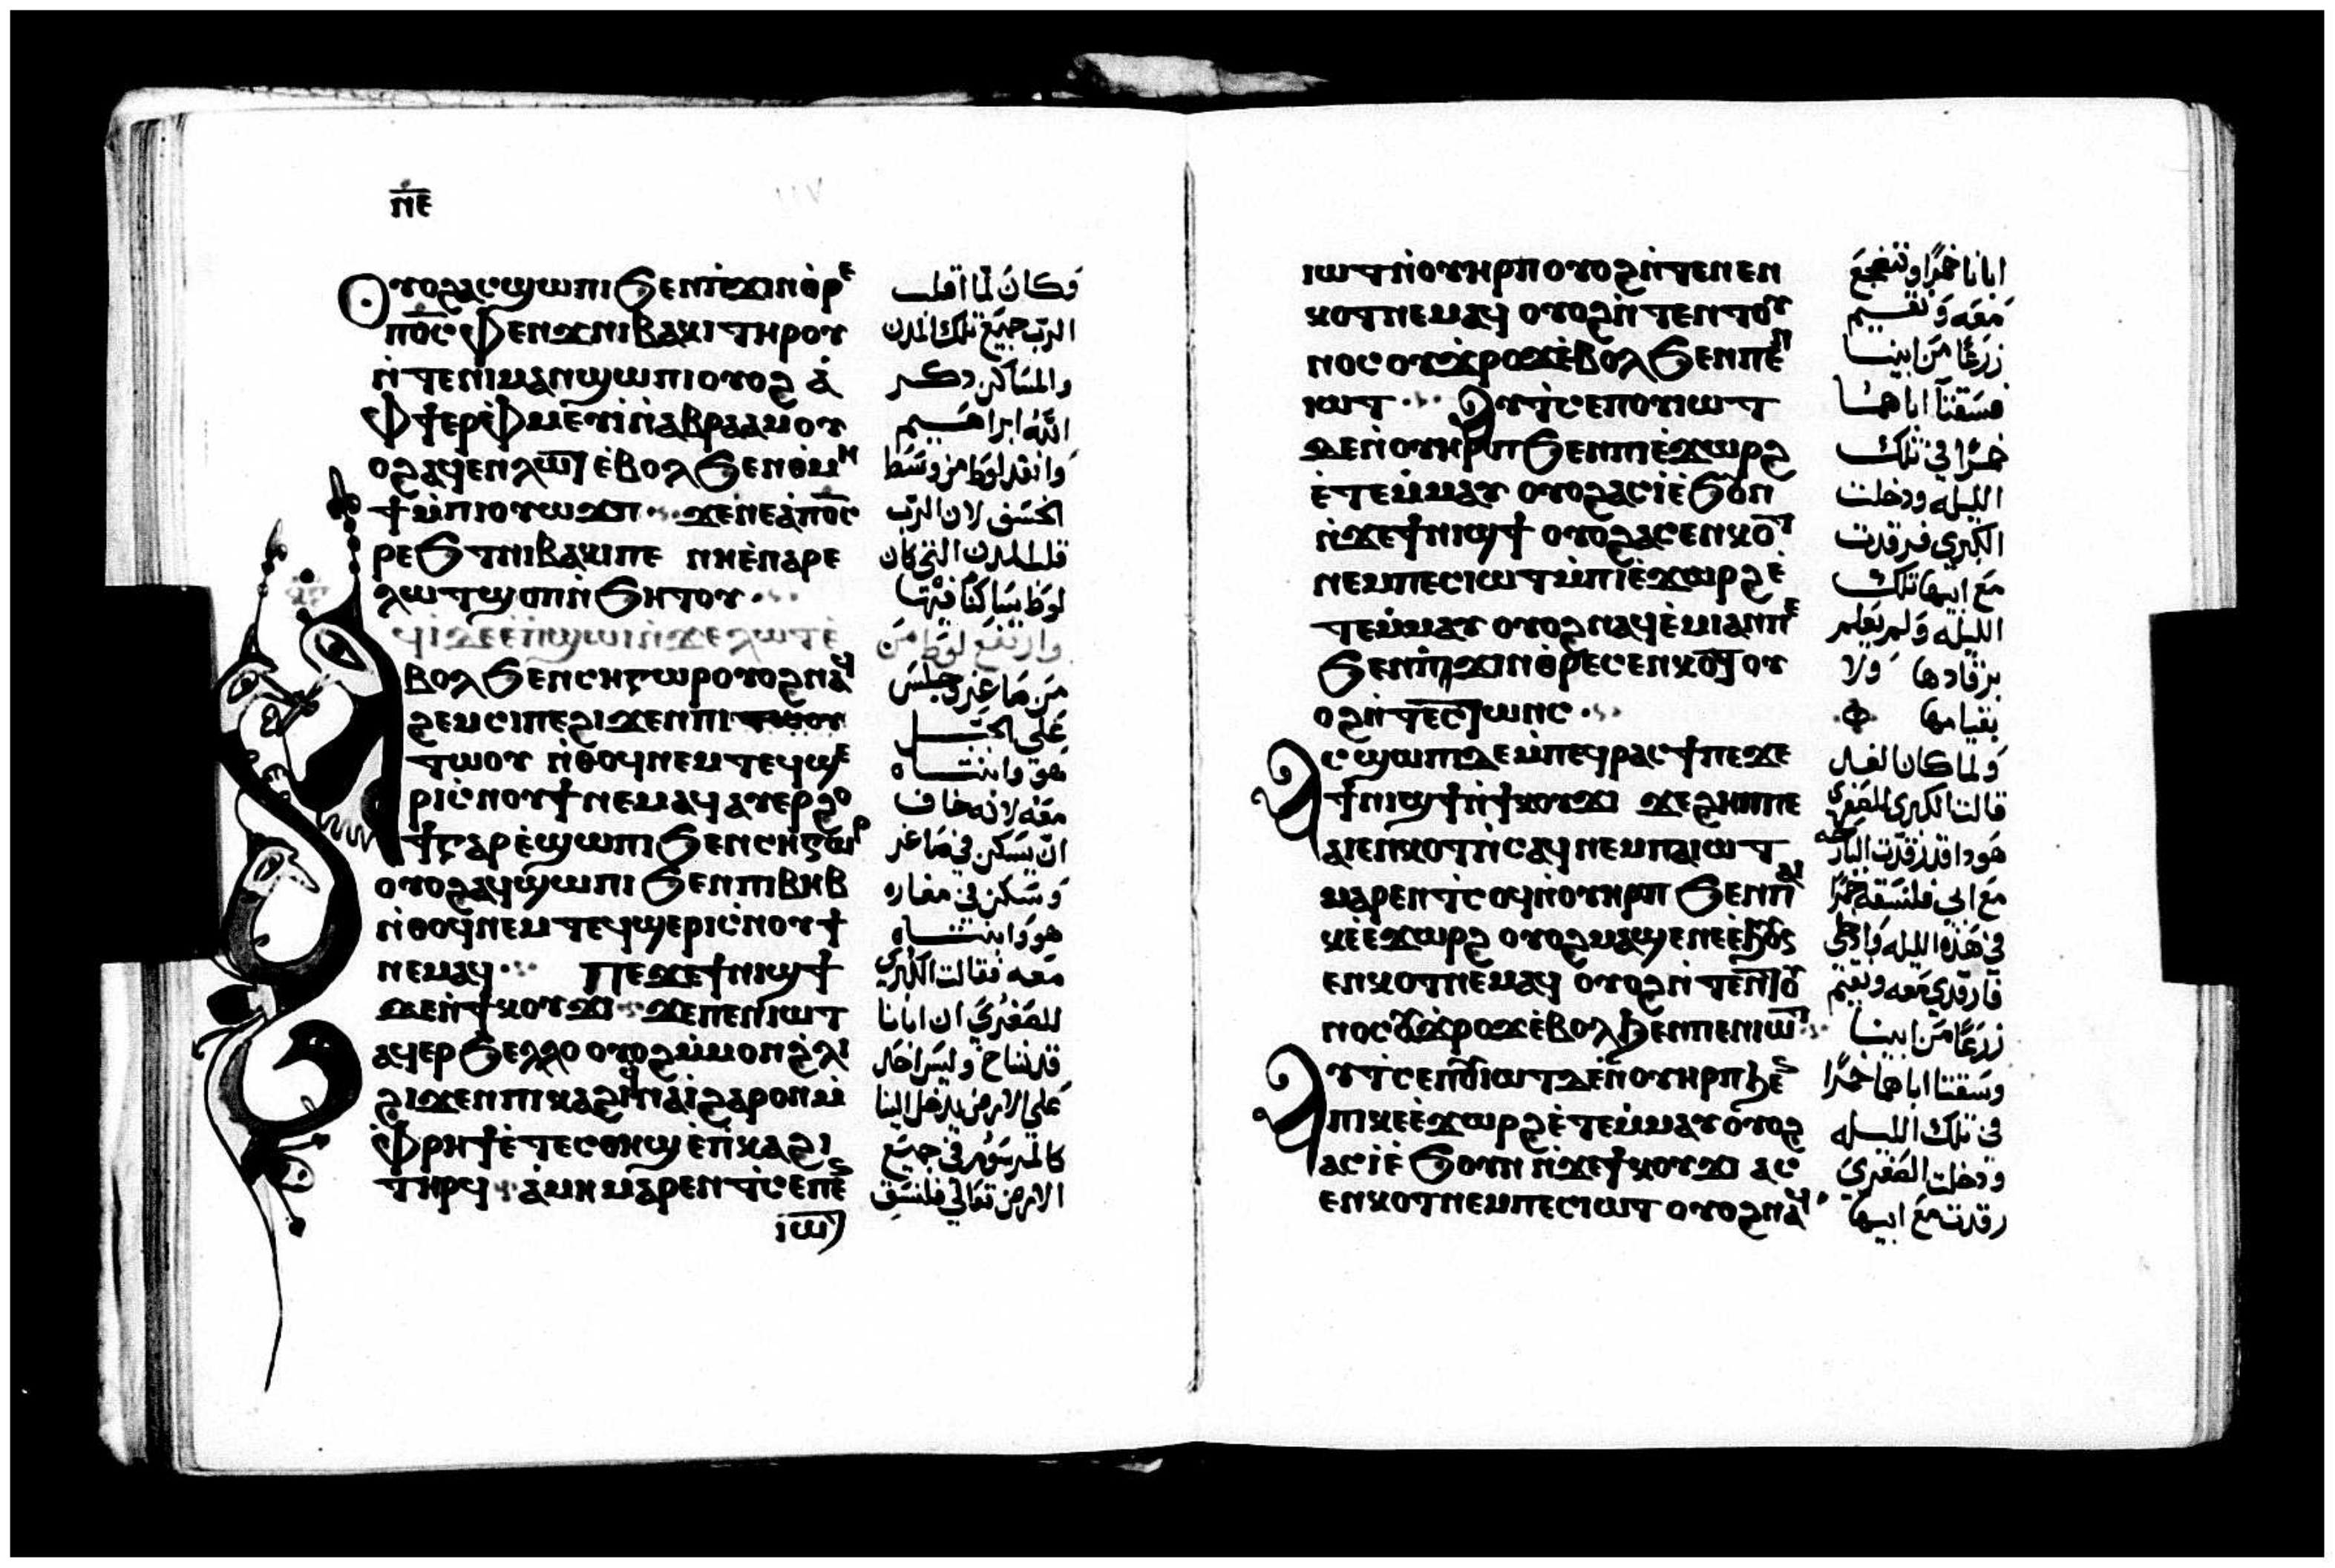 ⲛⲉ
ⲟⲩⲟϩ ⲁⲥϣⲱⲡⲓ ϧⲉⲛⲡϫⲓⲛⲑⲣⲉ
ⲡⲟ̅ⲥ̅ ⲫⲉⲛϫ ⲛⲓⲃⲁⲕⲓ ⲧⲏⲣⲟⲩ
ⲛ̀ⲧⲉⲛⲓⲙⲁⲛϣⲱⲡⲓ ⲟⲩⲟϩ ⲁ̀
ⲫϯ ⲉⲣⲫⲙⲉⲩⲓ̀ ⲛ̀ⲁⲃⲣⲁⲁⲙ ⲟⲩ
ⲟϩ ⲁϥⲉⲛ ⲗⲱⲧ ⲉ̀ⲃⲟⲗ ϧⲉⲛⲑⲙⲏ
ϯ ⲙ̀ⲡⲓⲟⲩⲱϫⲡ ϫⲉⲛⲉⲁ̀ ⲡⲟ̅ⲥ̅
ⲣⲉϧⲧ ⲛⲓⲃⲁⲕⲓ ⲡⲉ ⲛⲏⲉ̀ⲛⲁⲣⲉ
ⲗⲱⲧ ϣⲟⲡ ⲛ̀ϧⲏⲧⲟⲩ
ϥⲓ ⲇⲉ ⲉ̀ⲡϣⲱⲓ ⲛ̀ϫⲉ ⲗⲱⲧ ⲉ̀
ⲃⲟⲗ ϧⲉⲛ ⲥⲏⲅⲱⲣ ⲟⲩⲟϩ ⲛⲁϥ
ϩⲉⲙⲥⲓ ⲡⲉ ϩⲓϫⲉⲛⲡⲓ ⲧⲱⲟⲩ
ⲧⲱⲟⲩ ⲛ̀ⲑⲟϥ ⲛⲉⲙ ⲧⲉϥϣⲉ
ⲣⲓ ⲥ̀ⲛⲟⲩϯ ⲛⲉⲙⲁϥ ⲁⲩⲉⲣϩⲟ
ϯ ⲅⲁⲣ ⲉ̀ϣⲱⲡⲓ ϧⲉⲛ ⲥⲏⲅⲱⲣ
ⲟⲩⲟϩ ⲁϥϣⲱⲡⲓ ϧⲉⲛ ⲡⲓⲃⲏⲃ
ⲛ̀ⲑⲟϥ ⲛⲉⲙ ⲧⲉϥϣⲉⲣⲓ ⲥ̀ⲛⲟⲩϯ
ⲛⲉⲙⲁϥ ⲡⲉϫⲉ ϯⲛⲓϣϯ
ⲇⲉ ⲛ̀ϯⲕⲟⲩϫⲓ ϫⲉ ⲡⲉⲛⲓⲱⲧ
ⲁϥⲉⲣϧⲉⲗⲗⲟ ⲟⲩⲟϩ ⲙ̀ⲙⲟⲛ ϩ̀ⲗⲓ
ϩⲓϫⲉⲛ ⲡⲓⲕⲁϩⲓ ⲛⲁⲓ̀ ϩⲁⲣⲟⲛ ⲙ̀
ⲫⲣⲏϯ ⲉ̀ⲧⲉⲥⲟⲏϣ ⲉ̀ⲡⲕⲁϩⲓ
ⲧⲏⲣϥ ⲁ̀ⲙⲏ ⲙⲁⲣⲉⲛⲧⲥⲉ ⲡⲉⲛ
ⲓⲱⲧ
وكان لما اقلب
الرب جميع تلك المدن
والمساكن ذكر
الله ابراهيم
وانقد لوط من وسط
الخسف لان الرب
قلب المدن التي كان
لوط ساكنا فيها
وارتفع لوط من
من صاغر وجلس
على الجبل
هو وابنتاه
معه لانه خاف
ان يسكن في صاغر
وسكن في مغاره
هو وابنتاه
معه فقالت الكبري
للصغري ان ابانا
قد شاخ وليس احد
على الارض يدخل الينا
كالمرسوم في جميع
الارض تعالي فلنسق
ⲓⲱⲧ ⲛ̀ⲟⲩⲏⲣⲡ ⲟⲩⲟϩ ⲛ̀ⲧⲉⲛⲉⲛ
ⲕⲟⲧ ⲛⲉⲙⲁϥ ⲟⲩⲟϩ ⲛ̀ⲧⲉⲛⲧⲟⲩ
ⲛⲟⲥ ⲟⲩϫⲣⲟϫ ⲉ̀ⲃⲟⲗ ϧⲉⲛ ⲡⲉⲛ
ⲓⲱⲧ ⲁⲩⲧⲥⲉ ⲡⲟⲩⲓⲱⲧ
ⲇⲉ ⲛ̀ⲟⲩⲏⲣⲡ ϧⲉⲛ ⲡⲓⲉ̀ϫⲱⲣϩ
ⲉ̀ⲧⲉⲙ̀ⲙⲁⲩ ⲟⲩⲟϩ ⲁⲥⲓ ⲉ̀ϧⲟⲩⲛ
ⲛ̀ϫⲉ ϯⲛⲓϣϯ ⲟⲩⲟϩ ⲁⲥⲉⲛⲕⲟⲧ
ⲛⲉⲙ ⲡⲉⲥⲓⲱⲧ ⲙ̀ⲡⲓⲉ̀ϫⲱⲣϩ ⲉ̀
ⲧⲉⲙ̀ⲙⲁⲩ ⲟⲩⲟϩ ⲛⲁϥⲉ̀ⲙⲓ ⲁⲛ ⲡⲉ
ϧⲉⲛ ⲡϫⲓⲛⲑⲣⲉⲥⲉⲛⲕⲟⲧ ⲟⲩ
ⲟϩ ⲛ̀ⲧⲉⲥⲧⲱⲛⲥ
ⲁⲥϣⲱⲡⲓ ⲇⲉ ⲙ̀ⲡⲉϥⲣⲁⲥϯ ⲡⲉϫⲉ
ϯⲛⲓϣϯ ⲛ̀ϯⲕⲟⲩϫⲓ ϫⲉ ϩⲏⲡⲡⲉ
ⲁⲓⲉⲛⲕⲟⲧ ⲛ̀ⲥⲁϥ ⲛⲉⲙ ⲡⲁⲓⲱⲧ
ⲙⲁⲣⲉⲛⲧⲥⲟϥ ⲛ̀ⲟⲩⲏⲣⲡ ϧⲉⲛ ⲡⲁⲓ
ⲕⲉⲉ̀ϫⲱⲣϩ ⲟⲩⲟϩ ⲙⲁϣⲉ ⲛⲉ ⲉ̀ϧⲟⲩⲛ
ⲉⲛⲕⲟⲧ ⲛⲉⲙⲁϥ ⲟⲩⲟϩ ⲛ̀ⲧⲉⲛⲧⲟⲩ
ⲛⲟⲥ ⲟⲩϫⲣⲟϫ ⲉ̀ⲃⲟⲗ ϧⲉⲛ ⲡⲉⲛⲓⲱⲧ
ⲁⲩⲧⲥⲉ ⲡⲟⲩⲓⲱⲧ ⲇⲉ ⲛ̀ⲟⲩⲏⲣⲡ ϧⲉⲛ
ⲡⲓⲕⲉⲉ̀ϫⲱⲣϩ ⲉ̀ⲧⲉⲙ̀ⲙⲁⲩ ⲟⲩⲟϩ
ⲁⲥⲓ ⲉ̀ϧⲟⲩⲛ ⲛ̀ϫⲉ ϯⲕⲟⲩϫⲓ ⲁⲥ
ⲉⲛⲕⲟⲧ ⲛⲉⲙ ⲡⲉⲥⲓⲱⲧ ⲟⲩⲟϩ ⲛⲁϥ
ابانا خمرًا ونضجع
معه ونقيم
زرعًا من ابينا
فسقتا اباهما
خمرًا في تلك
الليله ودخلت
الكبري فرقدت
مع ابيها تلك
الليله ولم يعلم
برقادها ولا
بقيامها
ولما كان الغد
قالت الكبري للصغري
هودا قد رقدت البارحه
مع ابي فلنسقه خمرًا
في هذه الليله وادخلي
فارقدي معه ونقيم
زرعًا من ابينا
وسقتا اباهما خمرًا
في تلك الليله
ودخلت الصغري
رقدت مع ابيها